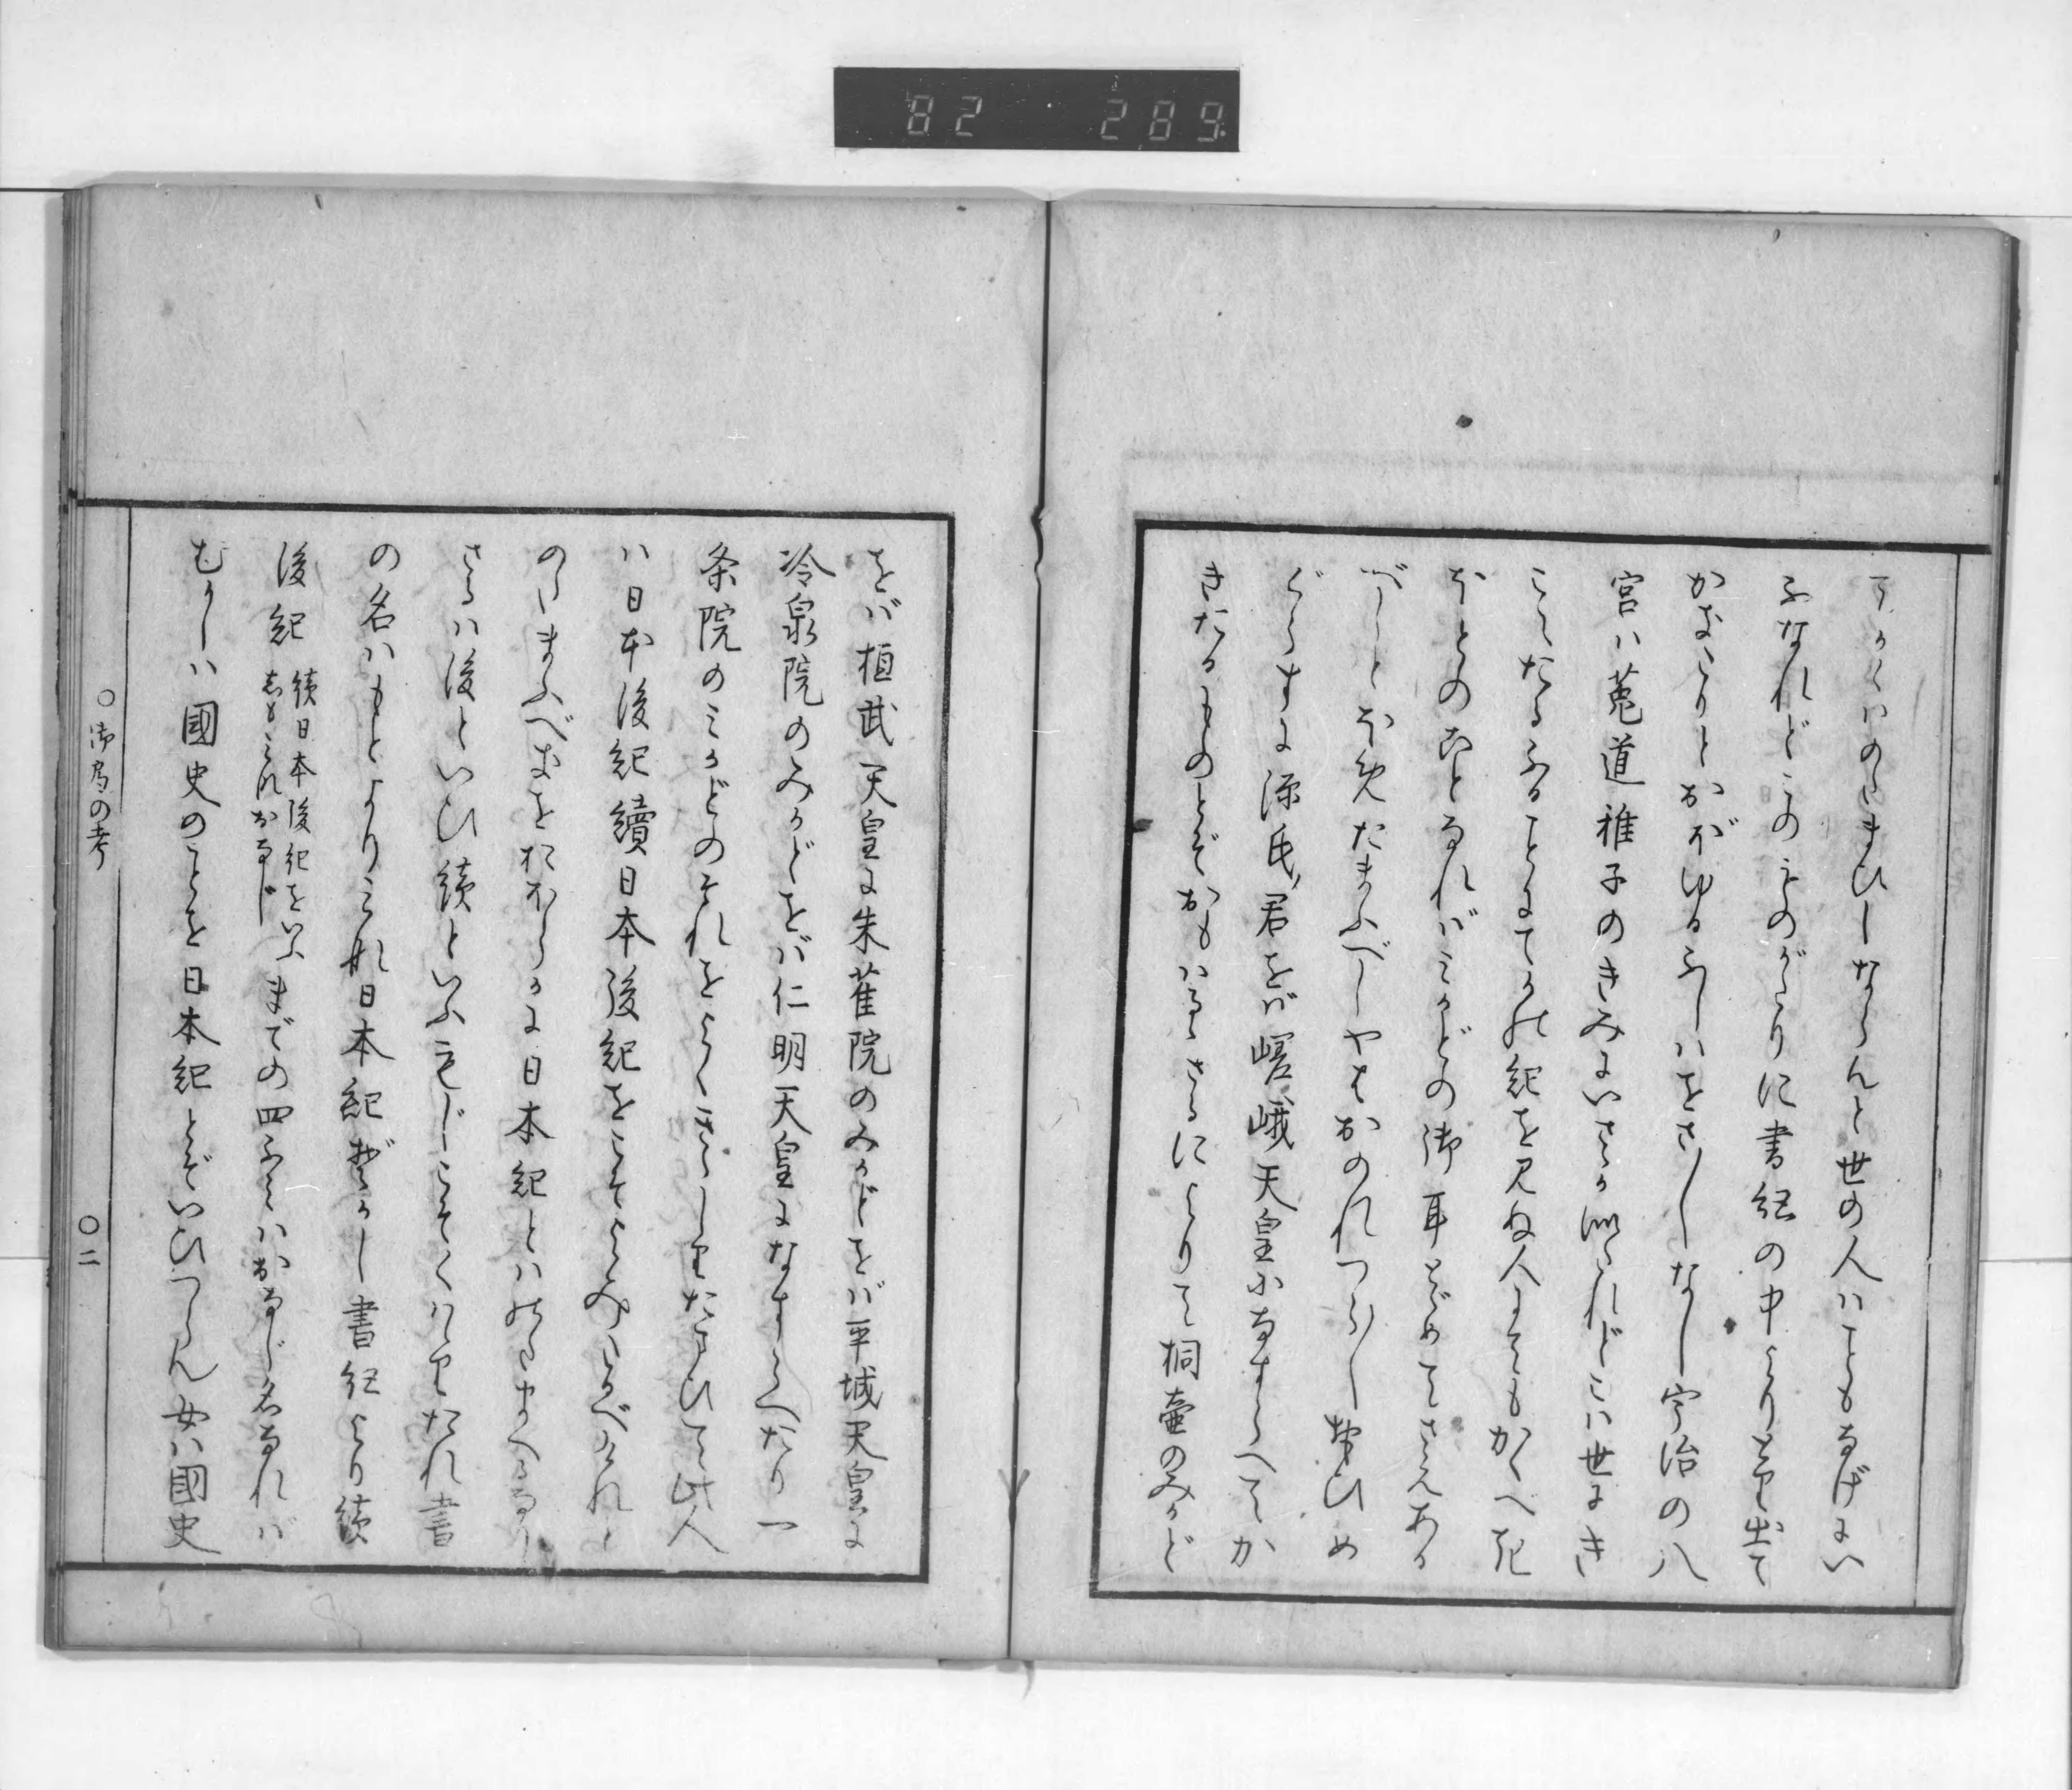 82 289
のたまひしならんと世の人ハことも なげにい
ふなれどこのものがたりに書紀の中よりとり出て
かなへりとおがゆるふしハをさ〳〵なし宇治の八
宮ハ菟道稚子のきみにいさゝか似られどこハ世にき
こえたるふることにてかの紀を見ぬ人にてもかくべき
ほどのことなれバみかどの御耳とゞめてさえある
べしとほめたまふべしやもおのれつら〳〵おもひめ
ぐらすに源氏ノ君をバ嵯峨天皇になすらへてか
きたるものとぞおもハるゝさるによりて桐壷のみかど
をバ桓武天皇に朱雀院のみかどをバ平城天皇に
冷泉院のみかどをバ仁明天皇になすらへたり一
条院のみかどのそれをよくさとしりたまひて此人
ハ日本後紀續日本後紀をこそよみつべけれと
のたまふべきをおほらかに日本紀とハのたまへるなり
さるハ後といひ續といふもじこそくハゝりたれ書
の名ハもとよりこれ日本紀ぞかし書紀より續
後紀まての四ふミハおなじ名なれバ
續日本後紀をいふ
しもこれおなじ
むかしハ國史のことを日本紀とぞいひつらん女ハ國史
○御局の考
○二